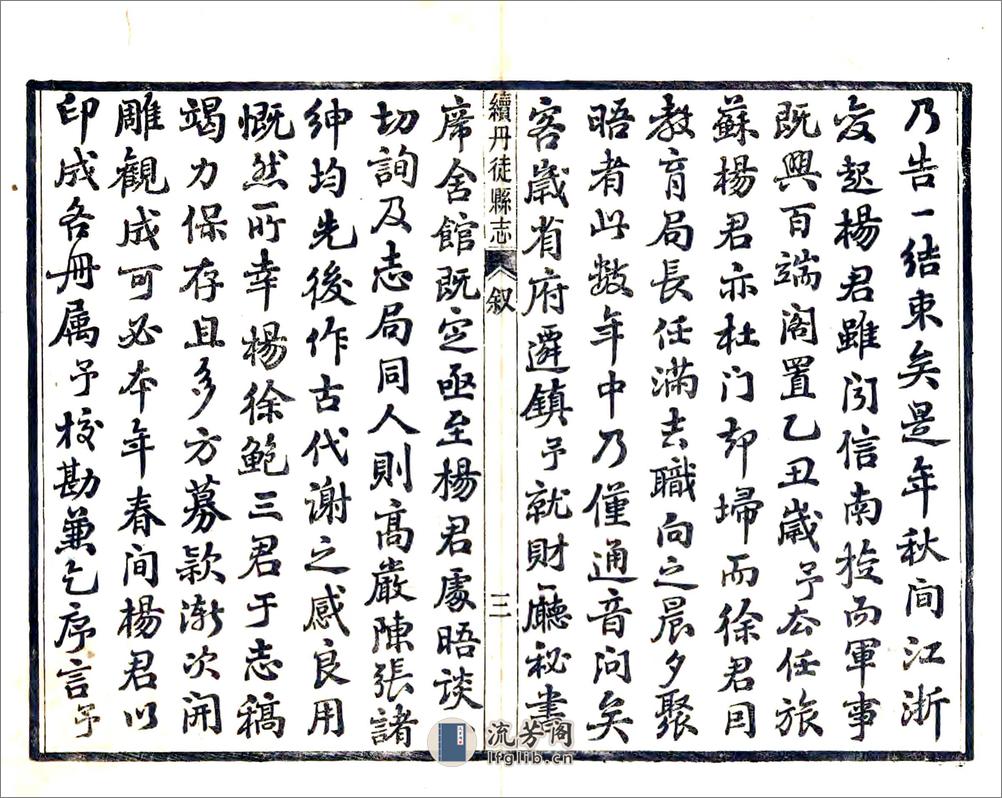 乃告一結束矣是年秋间江浙
变起楊君雖闭信南旋而軍事
既興百端阁置乙丑歲予去任旅
蘇楊君亦杜门却埽而徐君因
教育局長任滿去職向之晨夕聚
晤者此数年中乃僅通音问矣
客歲省府遷鎮予就財廳秘書
續丹徒縣志 叙 三
席舍館既定亟至楊君處晤谈
切詢及志局同人則高嚴陳張諸
紳均先後作古代謝之感良用
慨然所幸楊徐鲍三君于志稿
竭力保存且多方募款渐次開
雕觀成可必本年春间楊君以
印成各冊属予校勘兼乞序言予
流芳阁
lfglib.cn